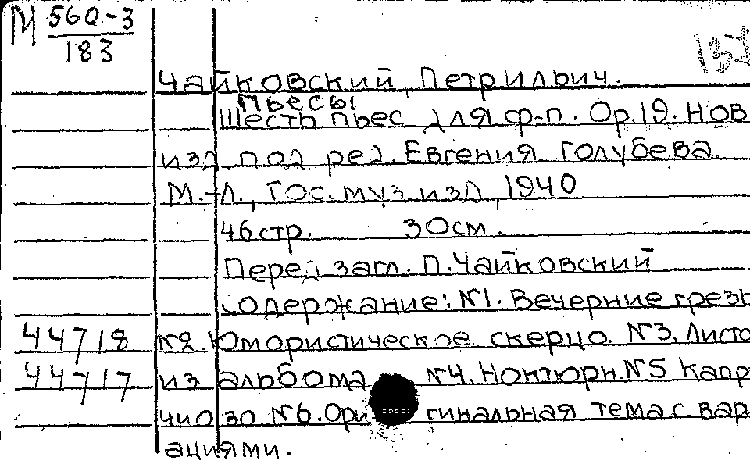 М 560-3
183
Чайковский, Петр Ильич.
Пьесы
Шесть пьес для ф-п. Op.19. Нов
изд под ред. Евгения Голубева
М.-Л., Гос. муз. изд, 1940
46 стр. 30 см.
Перед загл. П. Чайковский
Содержание: №1. Вечерние грезы
44718 №2. Юмористическое скерцо. №3. Листо
44717 из альбома №4. Ноктюрн. №5 Капр
чиозо №6. Оригинальная тема с вар
ациями.